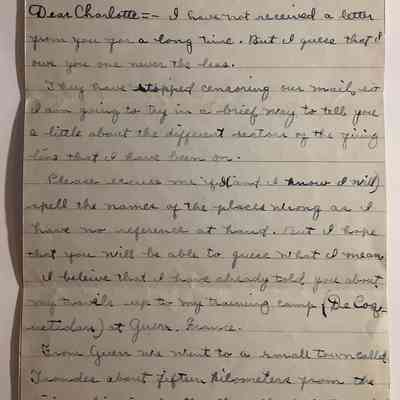 Dear Charlotte:- I have not received a letter
from you for a long time. But I guess that I
owe you one never the less.
They have stopped censoring our mail, so
I am going to try in a brief way to tell you
a little about the different sectors of the firing
line that I have been on.
Please excuse me if I (and I know I will)
spell the names of the places wrong as I
have no reference at hand. But I hope
that you will be able to guess what I mean.
I beleive that I have already told you about
my travels up to my training camp (De Coq-
uetidan) at Guer, France.
From Guer we went to a small town called
about fifteen kilometers from the